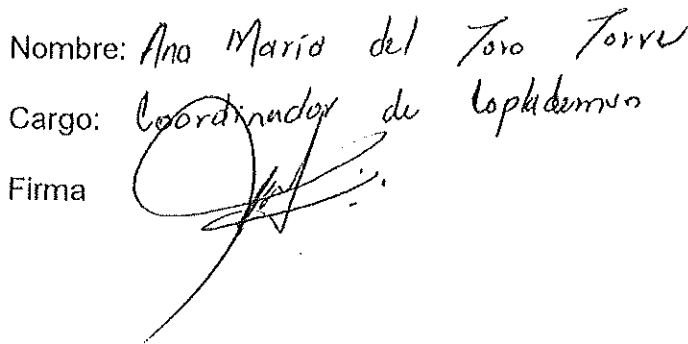 Nombre: Ana María del Toro Torre
Cargo: Coordinador de Coplademun
Firma